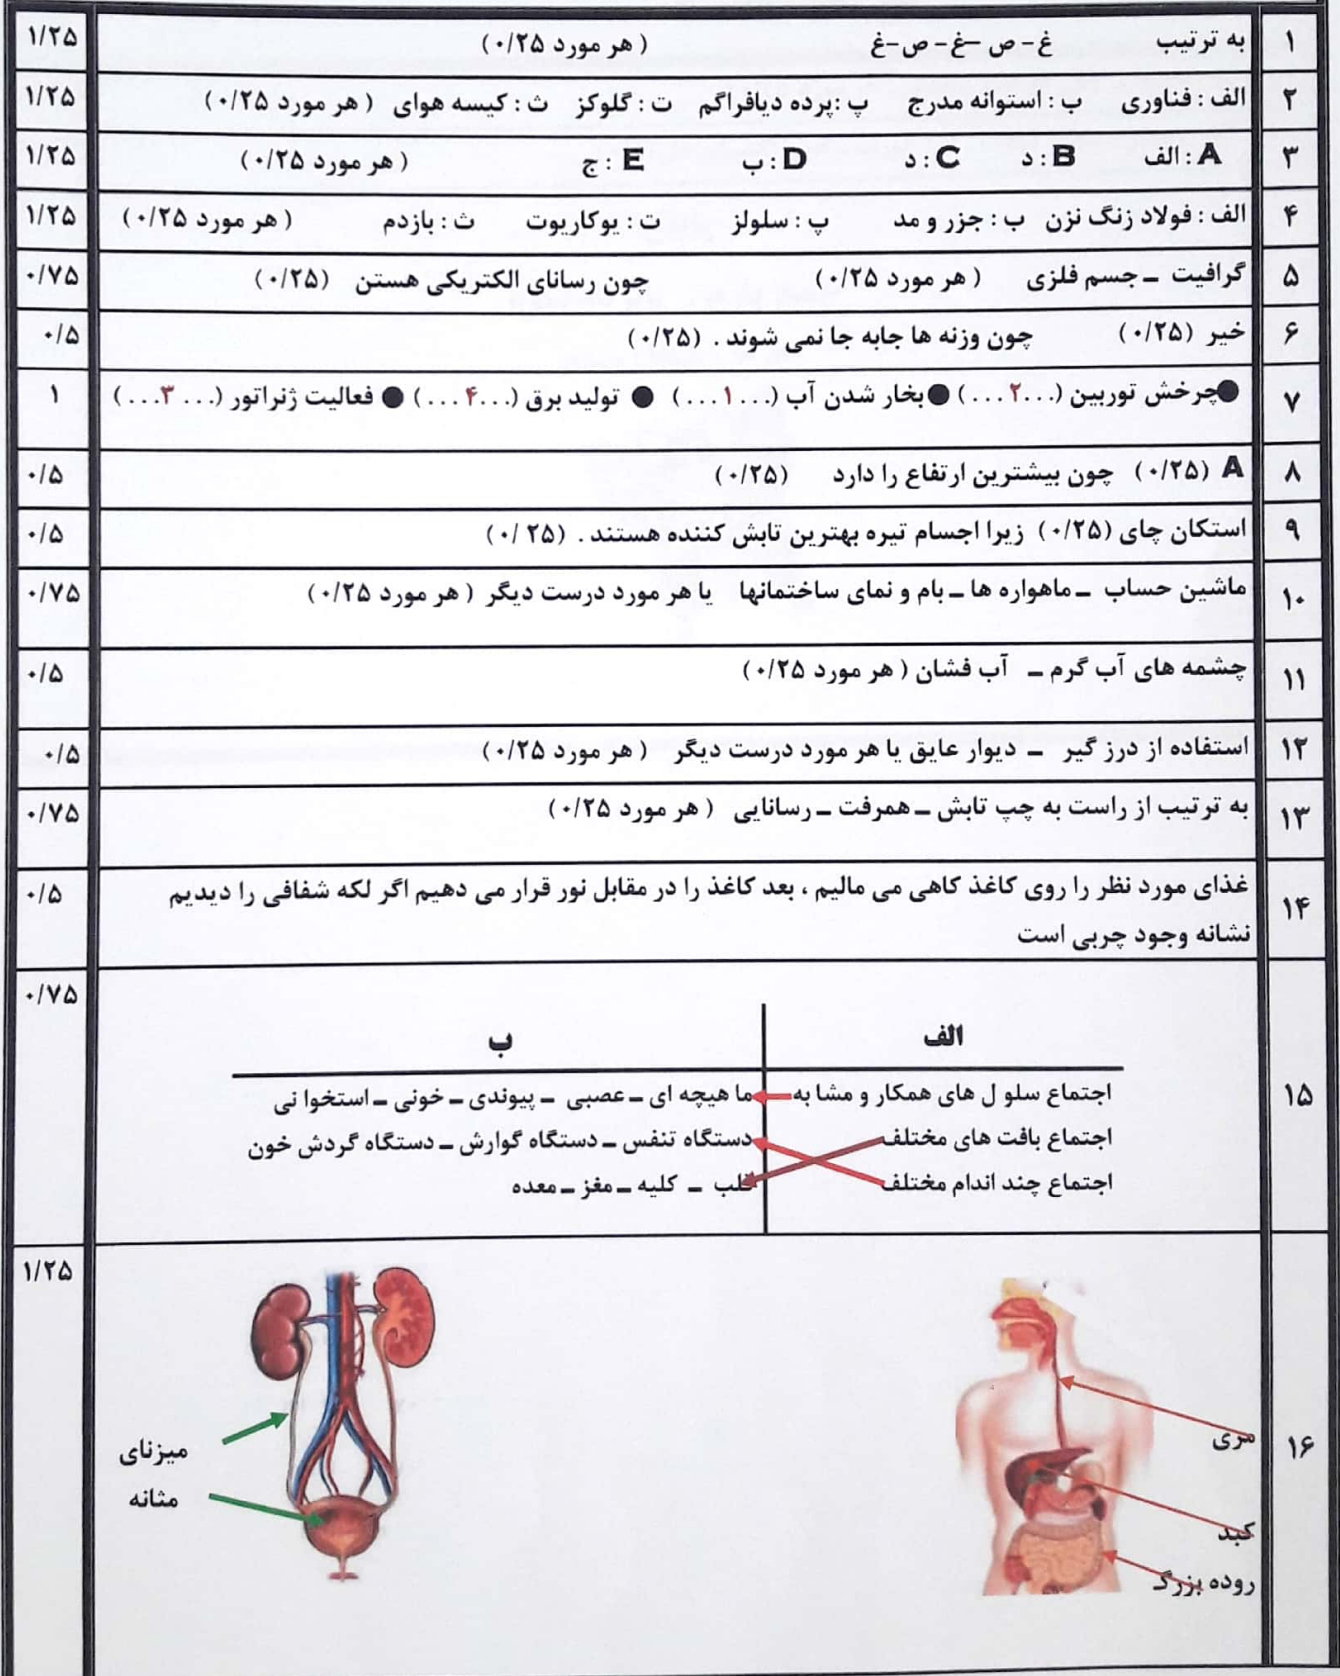 ۱ به ترتیب غ- ص -غ- ص-غ ( هر مورد ۰/۲۵) ۱/۲۵
۲ الف : فناوری ب : استوانه مدرج پ :پرده دیافراگم ت : گلوکز ث : کیسه هوای ( هر مورد ۰/۲۵) ۱/۲۵
۳ A : الف B : د C : د D : ب E : ج ( هر مورد ۰/۲۵) ۱/۲۵
۴ الف : فولاد زنگ نزن ب : جزر و مد پ : سلولز ت : یوکاریوت ث : بازدم ( هر مورد ۰/۲۵) ۱/۲۵
۵ گرافیت ـ جسم فلزی ( هر مورد ۰/۲۵) چون رسانای الکتریکی هستن (۰/۲۵) ۰/۷۵
۶ خیر (۰/۲۵) چون وزنه ها جابه جا نمی شوند . (۰/۲۵) ۰/۵
۷ ●چرخش توربین (...۲...) ●بخار شدن آب (...۱...) ● تولید برق (...۴...) ● فعالیت ژنراتور (...۳...) ۱
۸ A (۰/۲۵) چون بیشترین ارتفاع را دارد (۰/۲۵) ۰/۵
۹ استکان چای (۰/۲۵) زیرا اجسام تیره بهترین تابش کننده هستند . (۰/۲۵) ۰/۵
۱۰ ماشین حساب ـ ماهواره ها ـ بام و نمای ساختمانها یا هر مورد درست دیگر ( هر مورد ۰/۲۵) ۰/۷۵
۱۱ چشمه های آب گرم ـ آب فشان ( هر مورد ۰/۲۵) ۰/۵
۱۲ استفاده از درز گیر ـ دیوار عایق یا هر مورد درست دیگر ( هر مورد ۰/۲۵) ۰/۵
۱۳ به ترتیب از راست به چپ تابش ـ همرفت ـ رسانایی ( هر مورد ۰/۲۵) ۰/۷۵
۱۴ غذای مورد نظر را روی کاغذ کاهی می مالیم ، بعد کاغذ را در مقابل نور قرار می دهیم اگر لکه شفافی را دیدیم ۰/۵
نشانه وجود چربی است
۱۵ ۰/۷۵
الف ب
اجتماع سلو ل های همکار و مشا به ما هیچه ای ـ عصبی ـ پیوندی ـ خونی ـ استخوا نی
اجتماع بافت های مختلف دستگاه تنفس ـ دستگاه گوارش ـ دستگاه گردش خون
اجتماع چند اندام مختلف قلب ـ کلیه ـ مغز ـ معده
۱۶ ۱/۲۵
مری
کبد
روده بزرگ
میزنای
مثانه